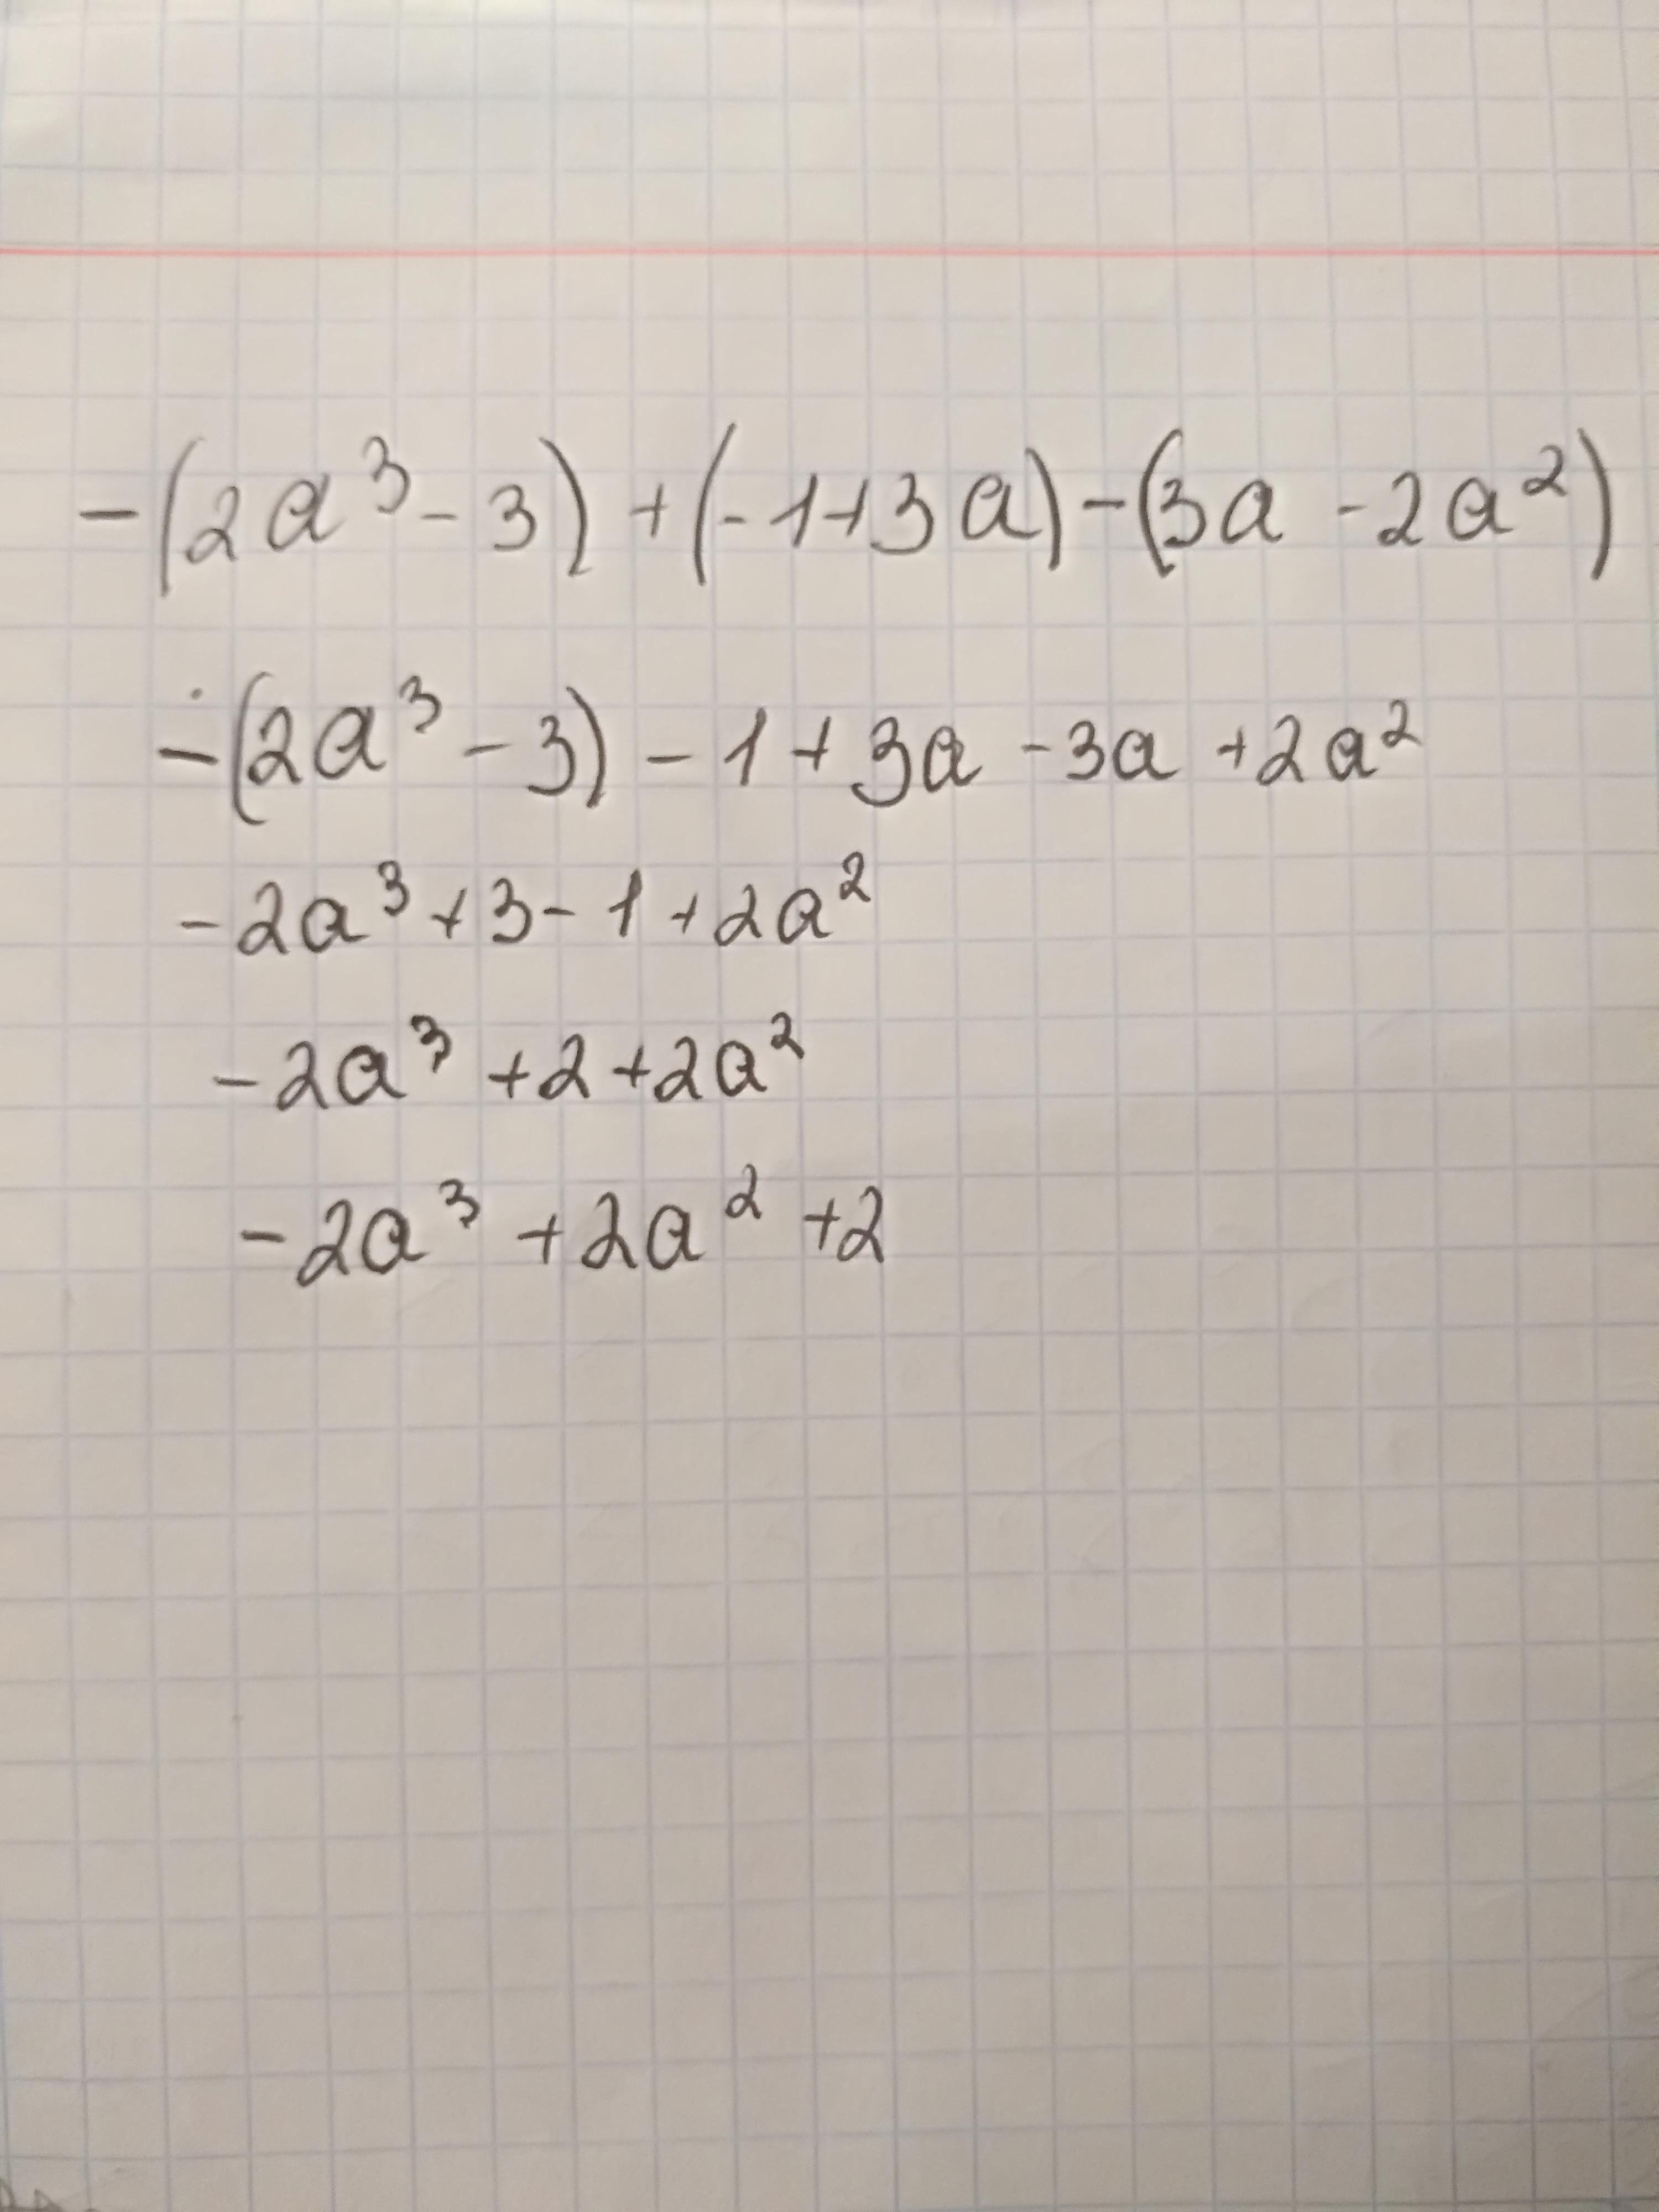 -(2a³-3)+(-1+3a)-(3a-2a²)
-(2a³-3)-1+3a-3a+2a²
-2a³+3-1+2a²
-2a³+2+2a²
-2a³+2a²+2